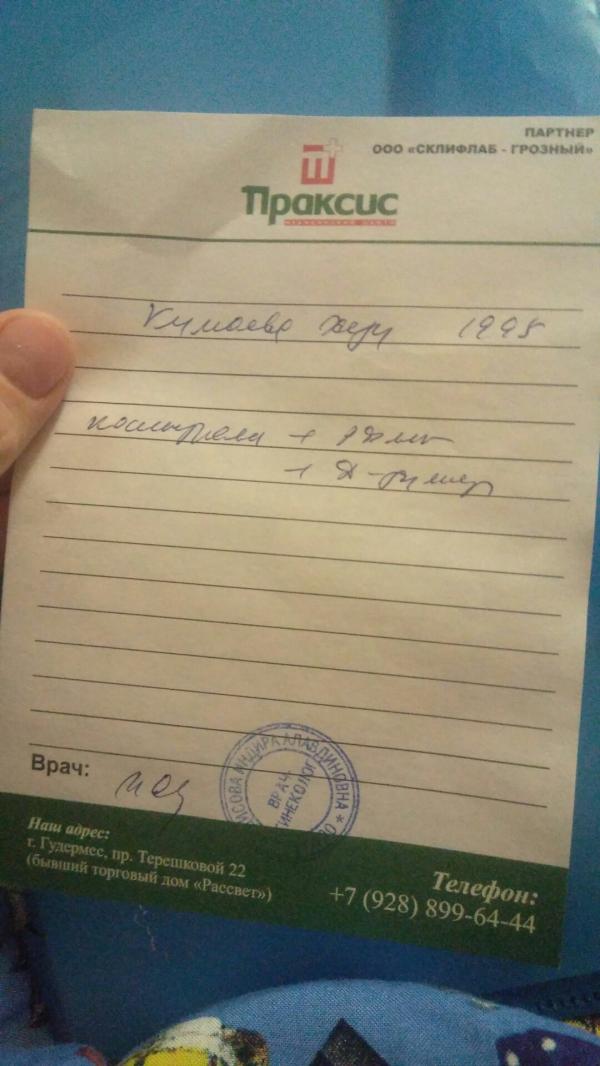 ПАРТНЕР
ООО «СКЛИФЛАБ - ГРОЗНЫЙ»
Праксис
МЕДИЦИНСКИЙ ЦЕНТР
1995
Коагулограмма + РФМК
+ Д-димер
Врач:
ИНДИРА АЛАВДИНОВНА *
ВРАЧ
ГИНЕКОЛОГ
Наш адрес:
г. Гудермес, пр. Терешковой 22
(бывший торговый дом «Рассвет»)
Телефон:
+7 (928) 899-64-44